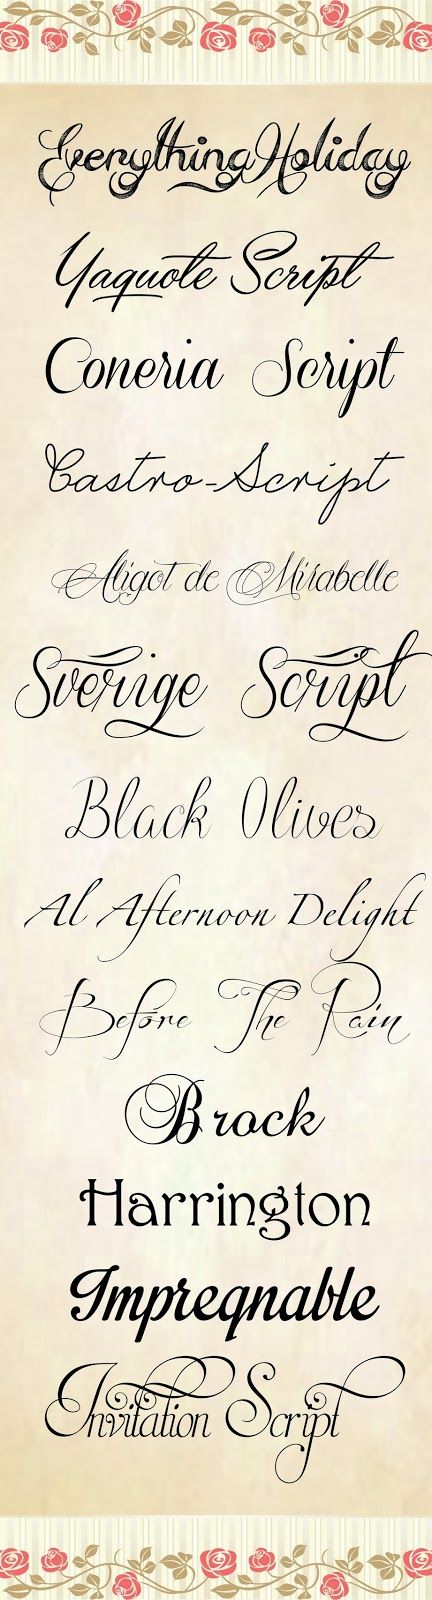 Everything Holiday
Yaquote Script
Coneria Script
Castro-Script
Aligot de Mirabelle
Sverige Script
Black Olives
Al Afternoon Delight
Before The Rain
Brock
Harrington
Impregnable
Invitation Script